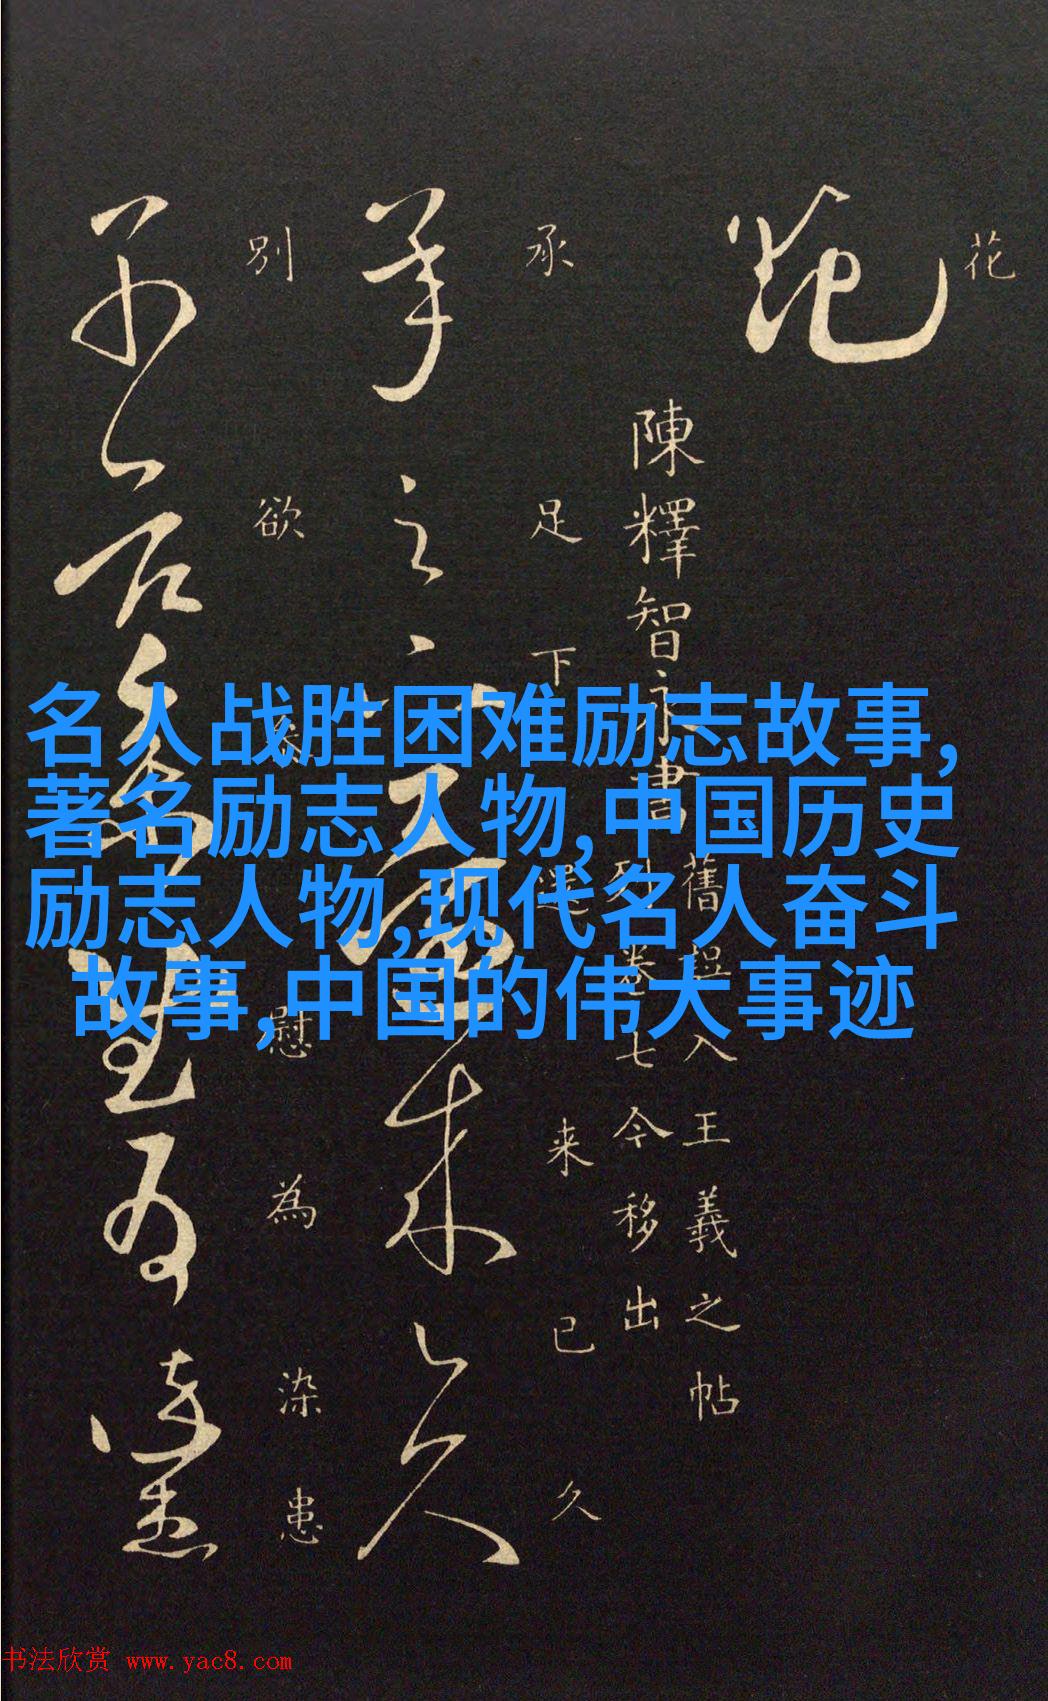 花
花
陳釋智永書
舊入王羲之帖
列卷七今移出
承足下還来已久
承足下還来已久
別欲慰為染患
名人战胜困难励志故事,
著名励志人物,中国历史
励志人物,现代名人奋斗
故事,中国的伟大事迹
书法欣赏 www.yac8.com